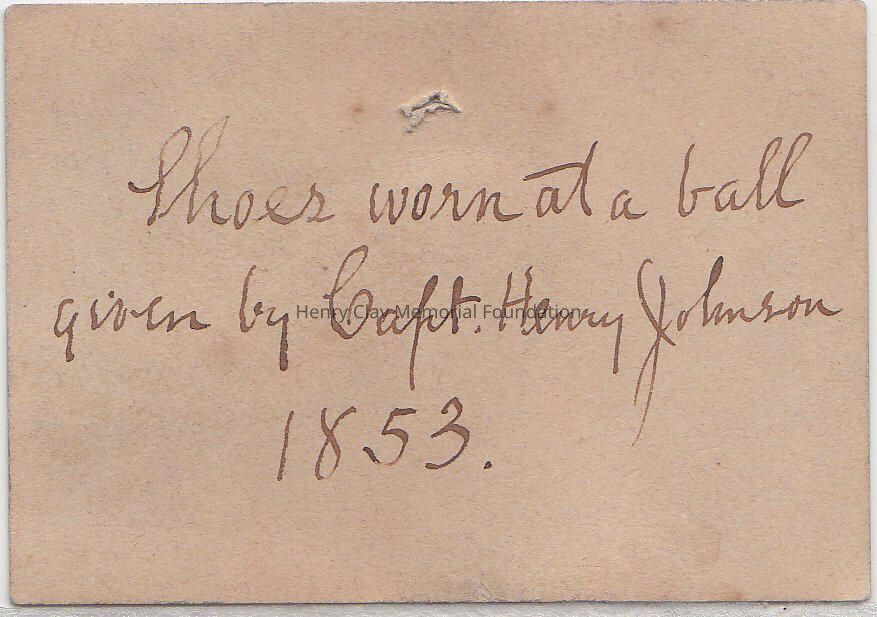 Shoes worn at a ball
given by Capt. Henry Johnson
Henry Clay Memorial Foundation
1853.